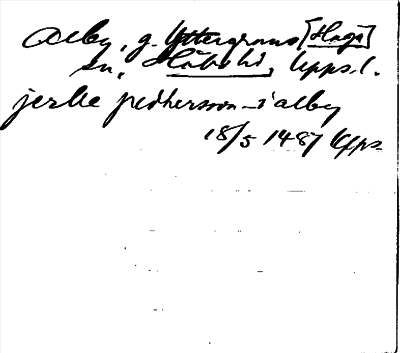 Aelby, g. Yttergrans [Haga]
sn, Håbo hd, Upps. l.
jerle pedhersson i aelby
18/5 1487 Upps.